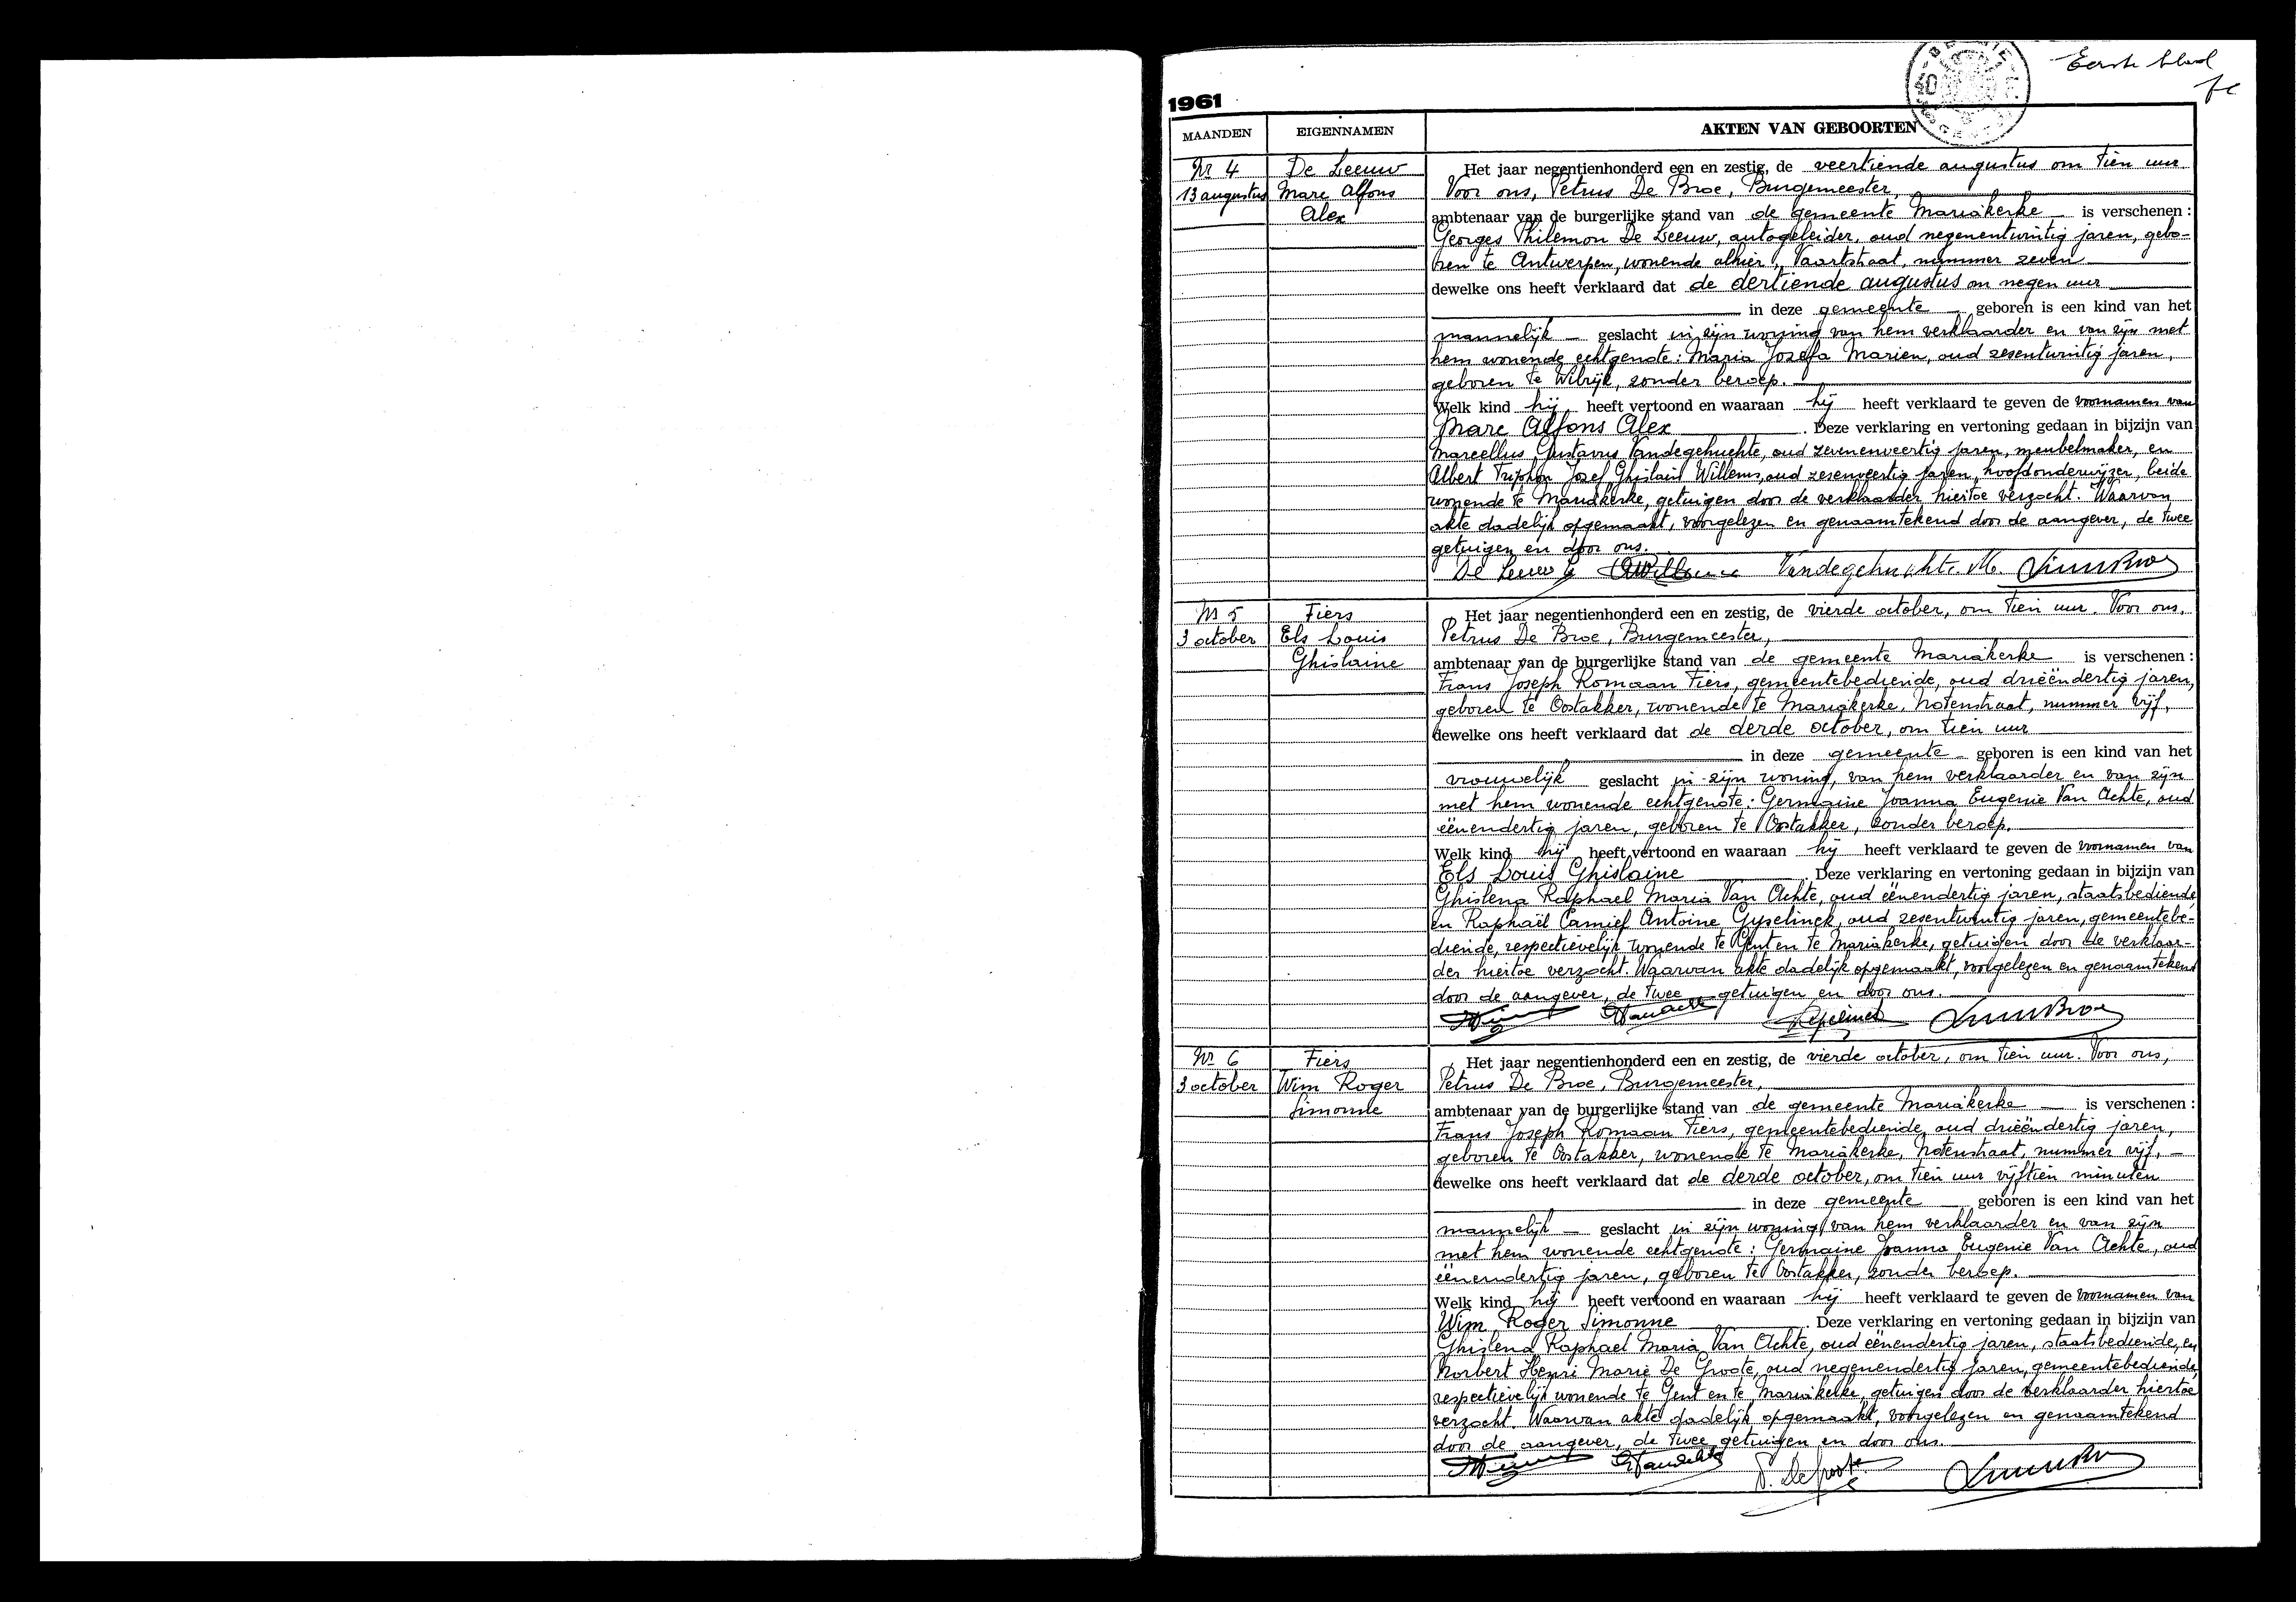 Eerste blad
1961
MAANDEN
EIGENNAMEN
AKTEN VAN GEBOORTEN
Nr 4
13 augustus
De Leeuw
Marc Alfons
Alex
Het jaar negentienhonderd een en zestig, de veertiende augustus om tien uur.
Voor ons, Petrus De Broe, Burgemeester,
ambtenaar van de burgerlijke stand van de gemeente Mariakerke is verschenen :
Georges Philemon De Leeuw, autogeleider, oud negenentwintig jaren, gebo-
ren te Antwerpen, wonende alhier, Vaartstraat, nummer zeven
dewelke ons heeft verklaard dat de dertiende augustus om negen uur
in deze gemeente geboren is een kind van het
mannelijk geslacht in zijn woning van hem verklaarder en van zijn met
hem wonende echtgenote: Maria Jozefa Marien, oud zesentwintig jaren,
geboren te Wilrijk, zonder beroep.
Welk kind hij heeft vertoond en waaraan hij heeft verklaard te geven de voornamen van
Marc Alfons Alex. Deze verklaring en vertoning gedaan in bijzijn van
Marcellus Gustavus Vandegehuchte, oud zevenenveertig jaren, meubelmaker, en
Albert Triphon Josef Ghislain Willems, oud zesenveertig jaren, hoofdonderwijzer, beide
wonende te Mariakerke, getuigen door de verklaarder hiertoe verzocht. Waarvan
akte dadelijk opgemaakt, voorgelezen en genaamtekend door de aangever, de twee
getuigen en door ons.
De Leeuw G Willems Vandegehuchte M.
Nr 5
3 october
Fiers
Els Louis
Ghislaine
Het jaar negentienhonderd een en zestig, de vierde october, om tien uur. Voor ons,
Petrus De Broe, Burgemeester,
ambtenaar van de burgerlijke stand van de gemeente Mariakerke is verschenen :
Frans Joseph Romaan Fiers, gemeentebediende, oud drieëndertig jaren,
geboren te Oostakker, wonende te Mariakerke, Notenstraat, nummer vijf,
dewelke ons heeft verklaard dat de derde october, om tien uur
in deze gemeente geboren is een kind van het
vrouwelijk geslacht in zijn woning, van hem verklaarder en van zijn
met hem wonende echtgenote: Germaine Joanna Eugenie Van Achte, oud
éénendertig jaren, geboren te Oostakker, zonder beroep.
Welk kind hij heeft vertoond en waaraan hij heeft verklaard te geven de voornamen van
Els Louis Ghislaine. Deze verklaring en vertoning gedaan in bijzijn van
Ghislena Raphael Maria Van Achte, oud éénendertig jaren, staatsbediende,
en Raphaël Camief Antoine Gyselinck, oud zesentwintig jaren, gemeentebe-
diende, respectievelijk wonende te Gent en te Mariakerke, getuigen door de verklaar-
der hiertoe verzocht. Waarvan akte dadelijk opgemaakt, voorgelezen en genaamtekend
door de aangever, de twee getuigen en door ons.
Nr 6
3 october
Fiers
Wim Roger
Simonne
Het jaar negentienhonderd een en zestig, de vierde october, om tien uur. Voor ons,
Petrus De Broe, Burgemeester,
ambtenaar van de burgerlijke stand van de gemeente Mariakerke is verschenen :
Frans Joseph Romaan Fiers, gemeentebediende, oud drieëndertig jaren,
geboren te Oostakker, wonende te Mariakerke, Notenstraat, nummer vijf,
dewelke ons heeft verklaard dat de derde october, om tien uur vijftien minuten
in deze gemeente geboren is een kind van het
mannelijk geslacht in zijn woning, van hem verklaarder en van zijn
met hem wonende echtgenote: Germaine Joanna Eugenie Van Achte, oud
éénendertig jaren, geboren te Oostakker, zonder beroep.
Welk kind hij heeft vertoond en waaraan hij heeft verklaard te geven de voornamen van
Wim Roger Simonne. Deze verklaring en vertoning gedaan in bijzijn van
Ghislena Raphael Maria Van Achte, oud éénendertig jaren, staatsbediende, en
Norbert Henri Marie De Groote, oud negenendertig jaren, gemeentebediende,
respectievelijk wonende te Gent en te Mariakerke, getuigen door de verklaarder hiertoe
verzocht. Waarvan akte dadelijk opgemaakt, voorgelezen en genaamtekend
door de aangever, de twee getuigen en door ons.